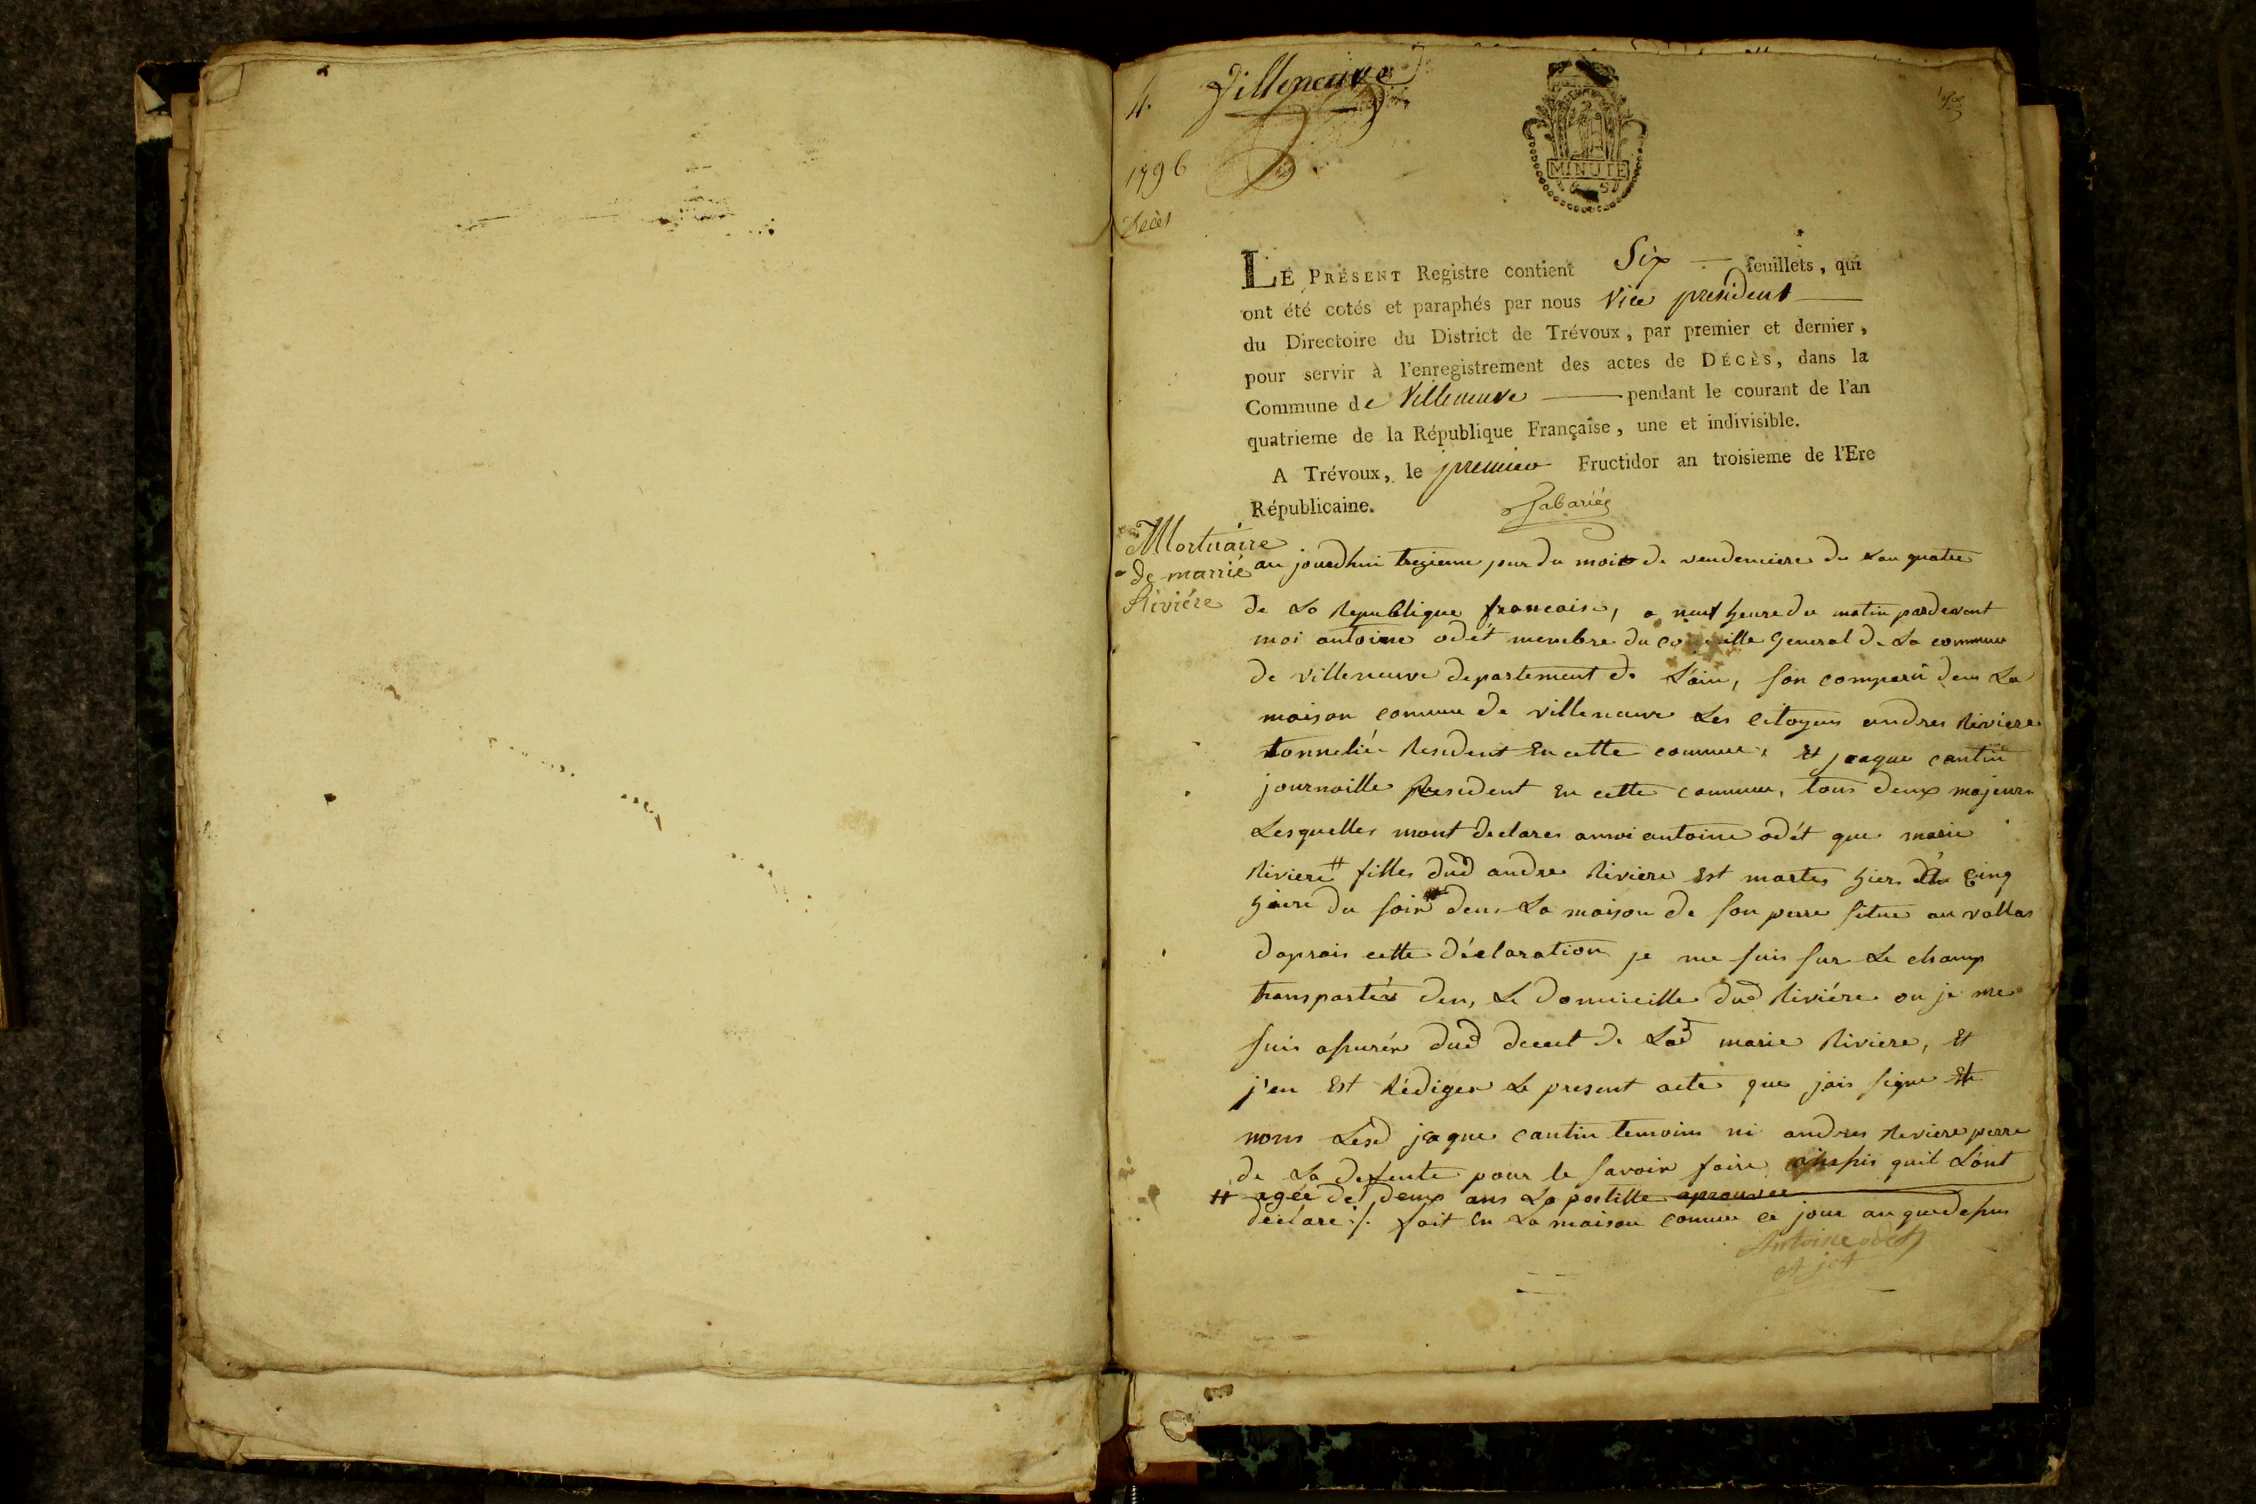 4. Villeneuve
1796
Décès
MINUTE
LE PRÉSENT Registre contient Six — feuillets, qui
ont été cotés et paraphés par nous Vice president —
du Directoire du District de Trévoux, par premier et dernier,
pour servir à l'enregistrement des actes de DÉCÈS, dans la
Commune de Villeneuve — pendant le courant de l'an
quatrieme de la République Française, une et indivisible.
A Trévoux, le premier Fructidor an troisieme de l'Ere
Républicaine.
Mortuaire
de marrie
Riviére
au jourdhui trezieme jour du mois de vendemiere de Lan quatre
de La Republique francaise, a neuf heure du matin pardevant
moi antoine odét membre du General de La commune
de villeneuve departement de Lain, son comparû dens La
maison comune de villeneuve Les citoyens andres Riviere
tonneliér Resident En cette commune, Et jeaque cantin
journaille Resident En cette commune, tous deux majeurs
Lesquelles mont declares amoi antoine odét que marie
Riviere # filles dud andre Riviere Est martes hiers cinq
heure du soir dens La maison de son perre situe au vallas
daprais cette déclaration je me suis sur Le champ
transportér den, Le domicille dud Riviére ou je me
suis assurér dud decet de Lad marie Riviere, Et
j'en Est Rédiger Le present acte que jais signe Et
nons Lesd jaque cantin temoins ni andres Reviere perre
de La defente pour le savoir faire quil Lont
# agée de deux ans La postille aprouvee
declare ./. fait En La maison comune ce jour an quedesus
Antoine odét